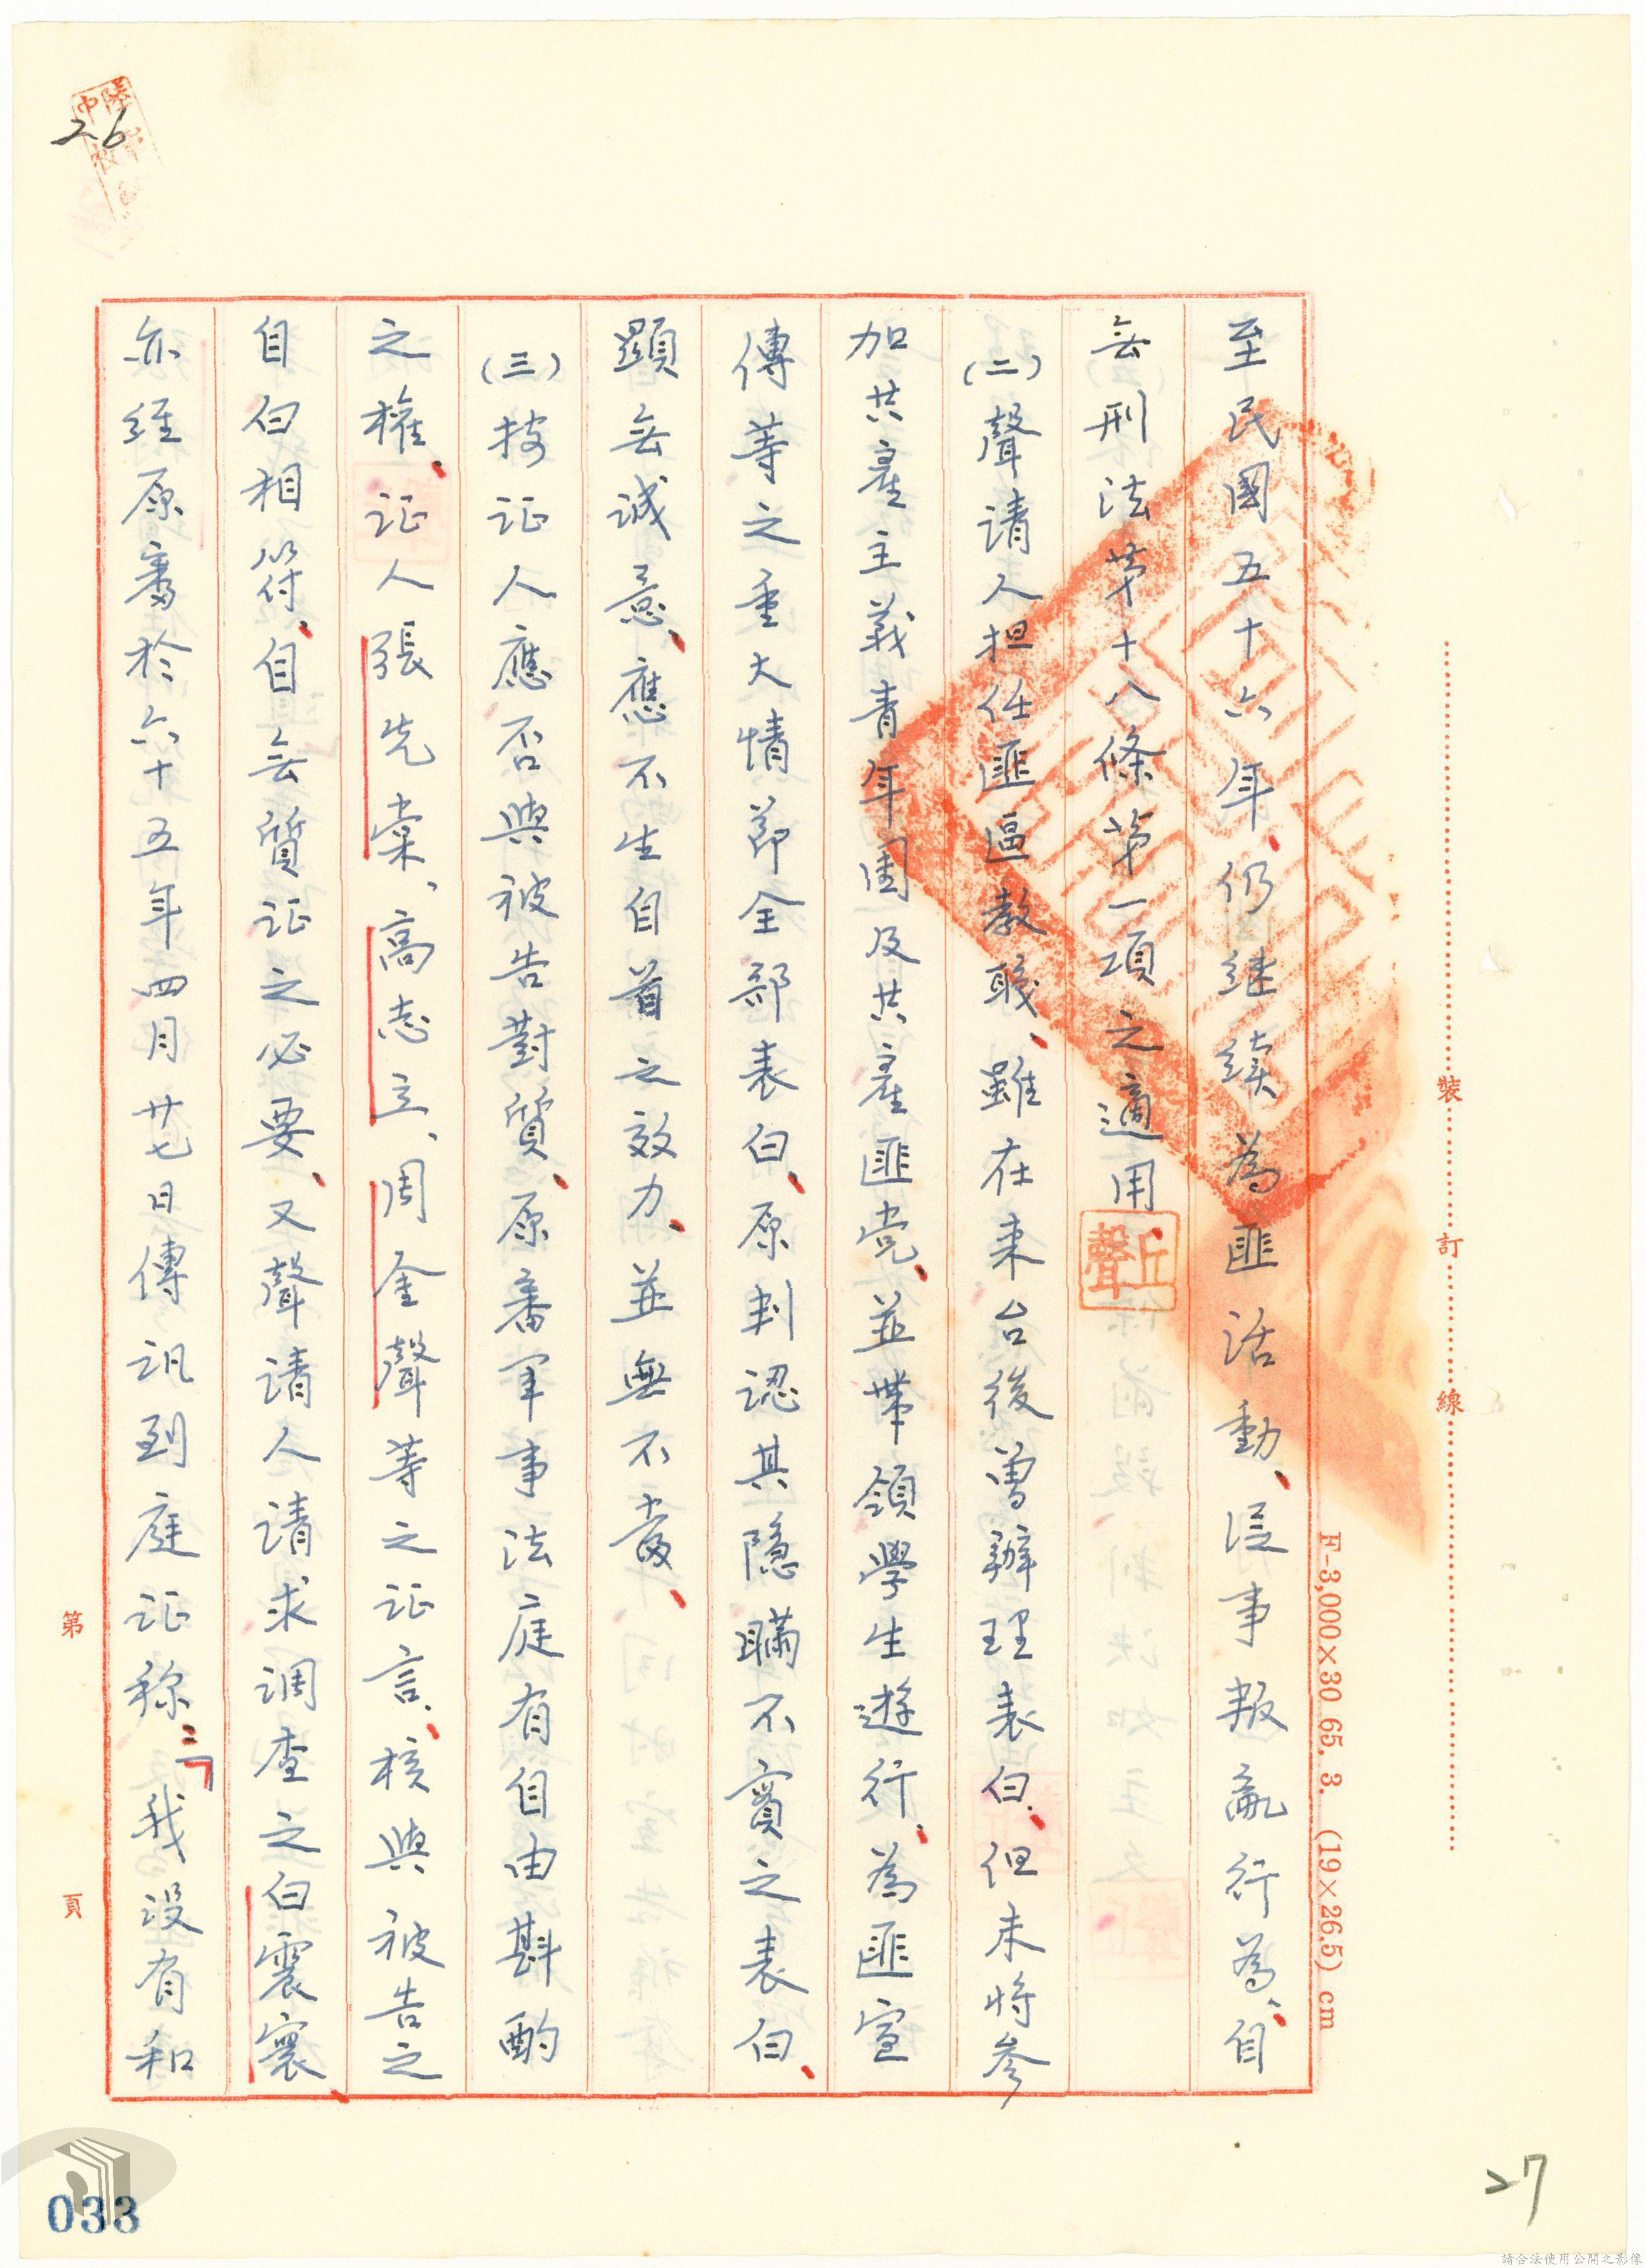 至民國五十六年、仍继续為匪活動、從事叛亂行為、自
無刑法第十八條第一項之適用
丘聲
(二)聲請人担任匪區教職、雖在來台後曾辦理表白、但未將參
加共產主義青年團及共產匪党、並帶領學生遊行、為匪宣
傳等之重大情節全部表白、原判認其隐瞞不實之表白、
顯無誠意、應不生自首之效力、並無不當、
(三)按証人應否與被告對質、原審軍事法庭有自由斟酌
之權、証人張先棠、高志立、周金聲等之証言、核與被告之
自白相符、自無質証之必要、又聲請人請求調查之白震寰、
亦經原審於六十五年四月廿七日傳訊到庭証称：「我没有和
裝
訂
線
F-3,000×30 65. 3. (19×26.5) cm
第
頁
26
27
033
請合法使用公開之影像